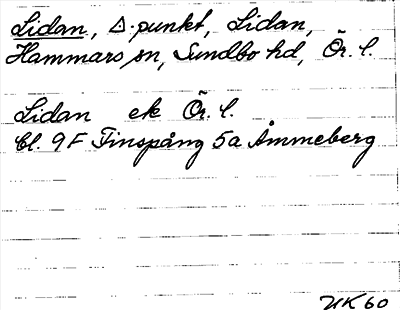 Lidan, △.punkt, Lidan,
Hammars sn, Sundbo hd, Ör. l.
Lidan ek Ör. l.
Bl. 9F Finspång 5a Åmmeberg
HK 60